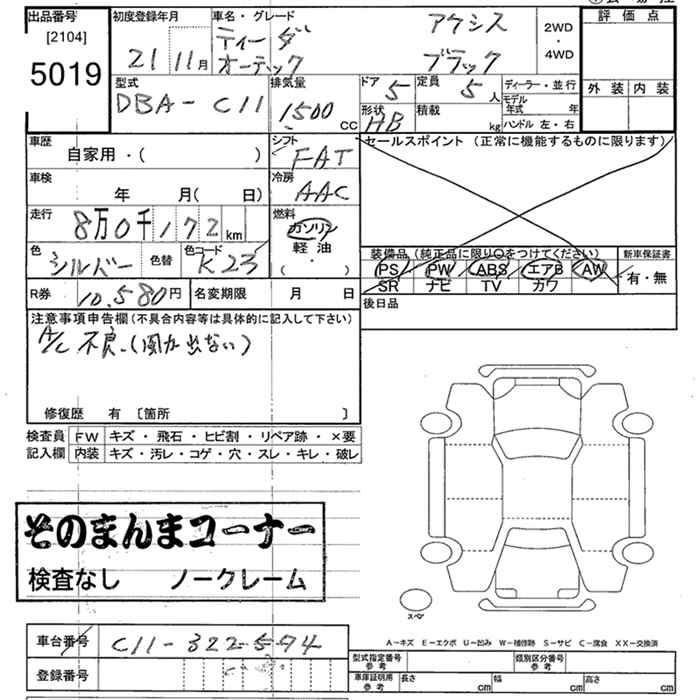 出品番号 初度登録年月 車名・グレード アクシス 評価点
[2104] 21 11月 ティーダ 2WD
5019 オーテック ブラック ・ 4WD
型式 排気量 ドア 5 定員 5人 ディーラー・並行 外装 内装
DBA-C11 1500 CC 形状 HB 積載 kg モデル年式 年
ハンドル 左・右
車歴 シフト セールスポイント (正常に機能するものに限ります)
自家用・( ) FAT
車検 冷房
年 月( 日) AAC
走行 燃料
8万0千172km ガソリン
色 シルバー 色替 色コード K23 軽油
( ・ )
装備品(純正品に限り○をつけてください) 新車保証書
PS PW ABS エアB AW 有・無
SR ナビ TV カワ
R券 10,580円 名変期限 月 日 後日品
注意事項申告欄(不具合内容等は具体的に記入して下さい)
A/C 不良.(風が出ない)
修復歴 有 [箇所 ]
検査員 FW キズ・飛石・ヒビ割・リペア跡・×要
記入欄 内装 キズ・汚レ・コゲ・穴・スレ・キレ・破レ
そのまんまコーナー
検査なし ノークレーム
スペア
A-キズ E-エクボ U-凹み W-補修跡 S-サビ C-腐食 XX-交換済
車台番号 C11-322594
登録番号
型式指定番号 参考 類別区分番号 参考
車庫証明用 参考 長さ cm 幅 cm 高さ cm